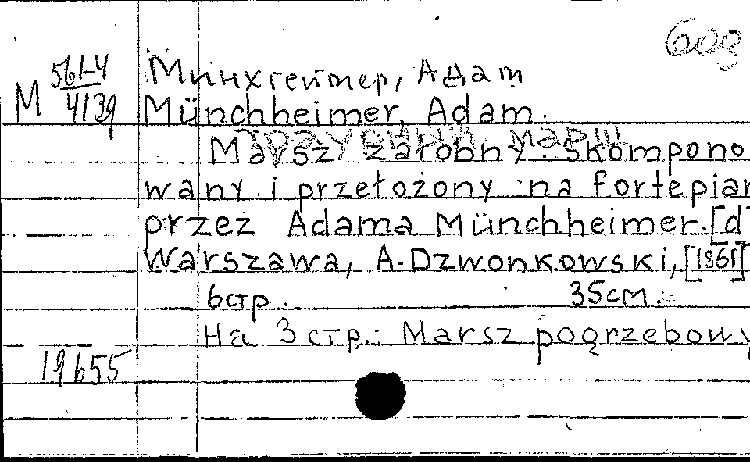 603
М 561-4/4139
Минхгеймер, Адам
Münchheimer, Adam.
Marsz żałobny. Skompono
wany i przełożony na fortepian
przez Adama Münchheimer. [d
Warszawa, A. Dzwonkowski, [1861]
6 стр. 35 см.
На 3 стр.: Marsz pogrzebowy
19655